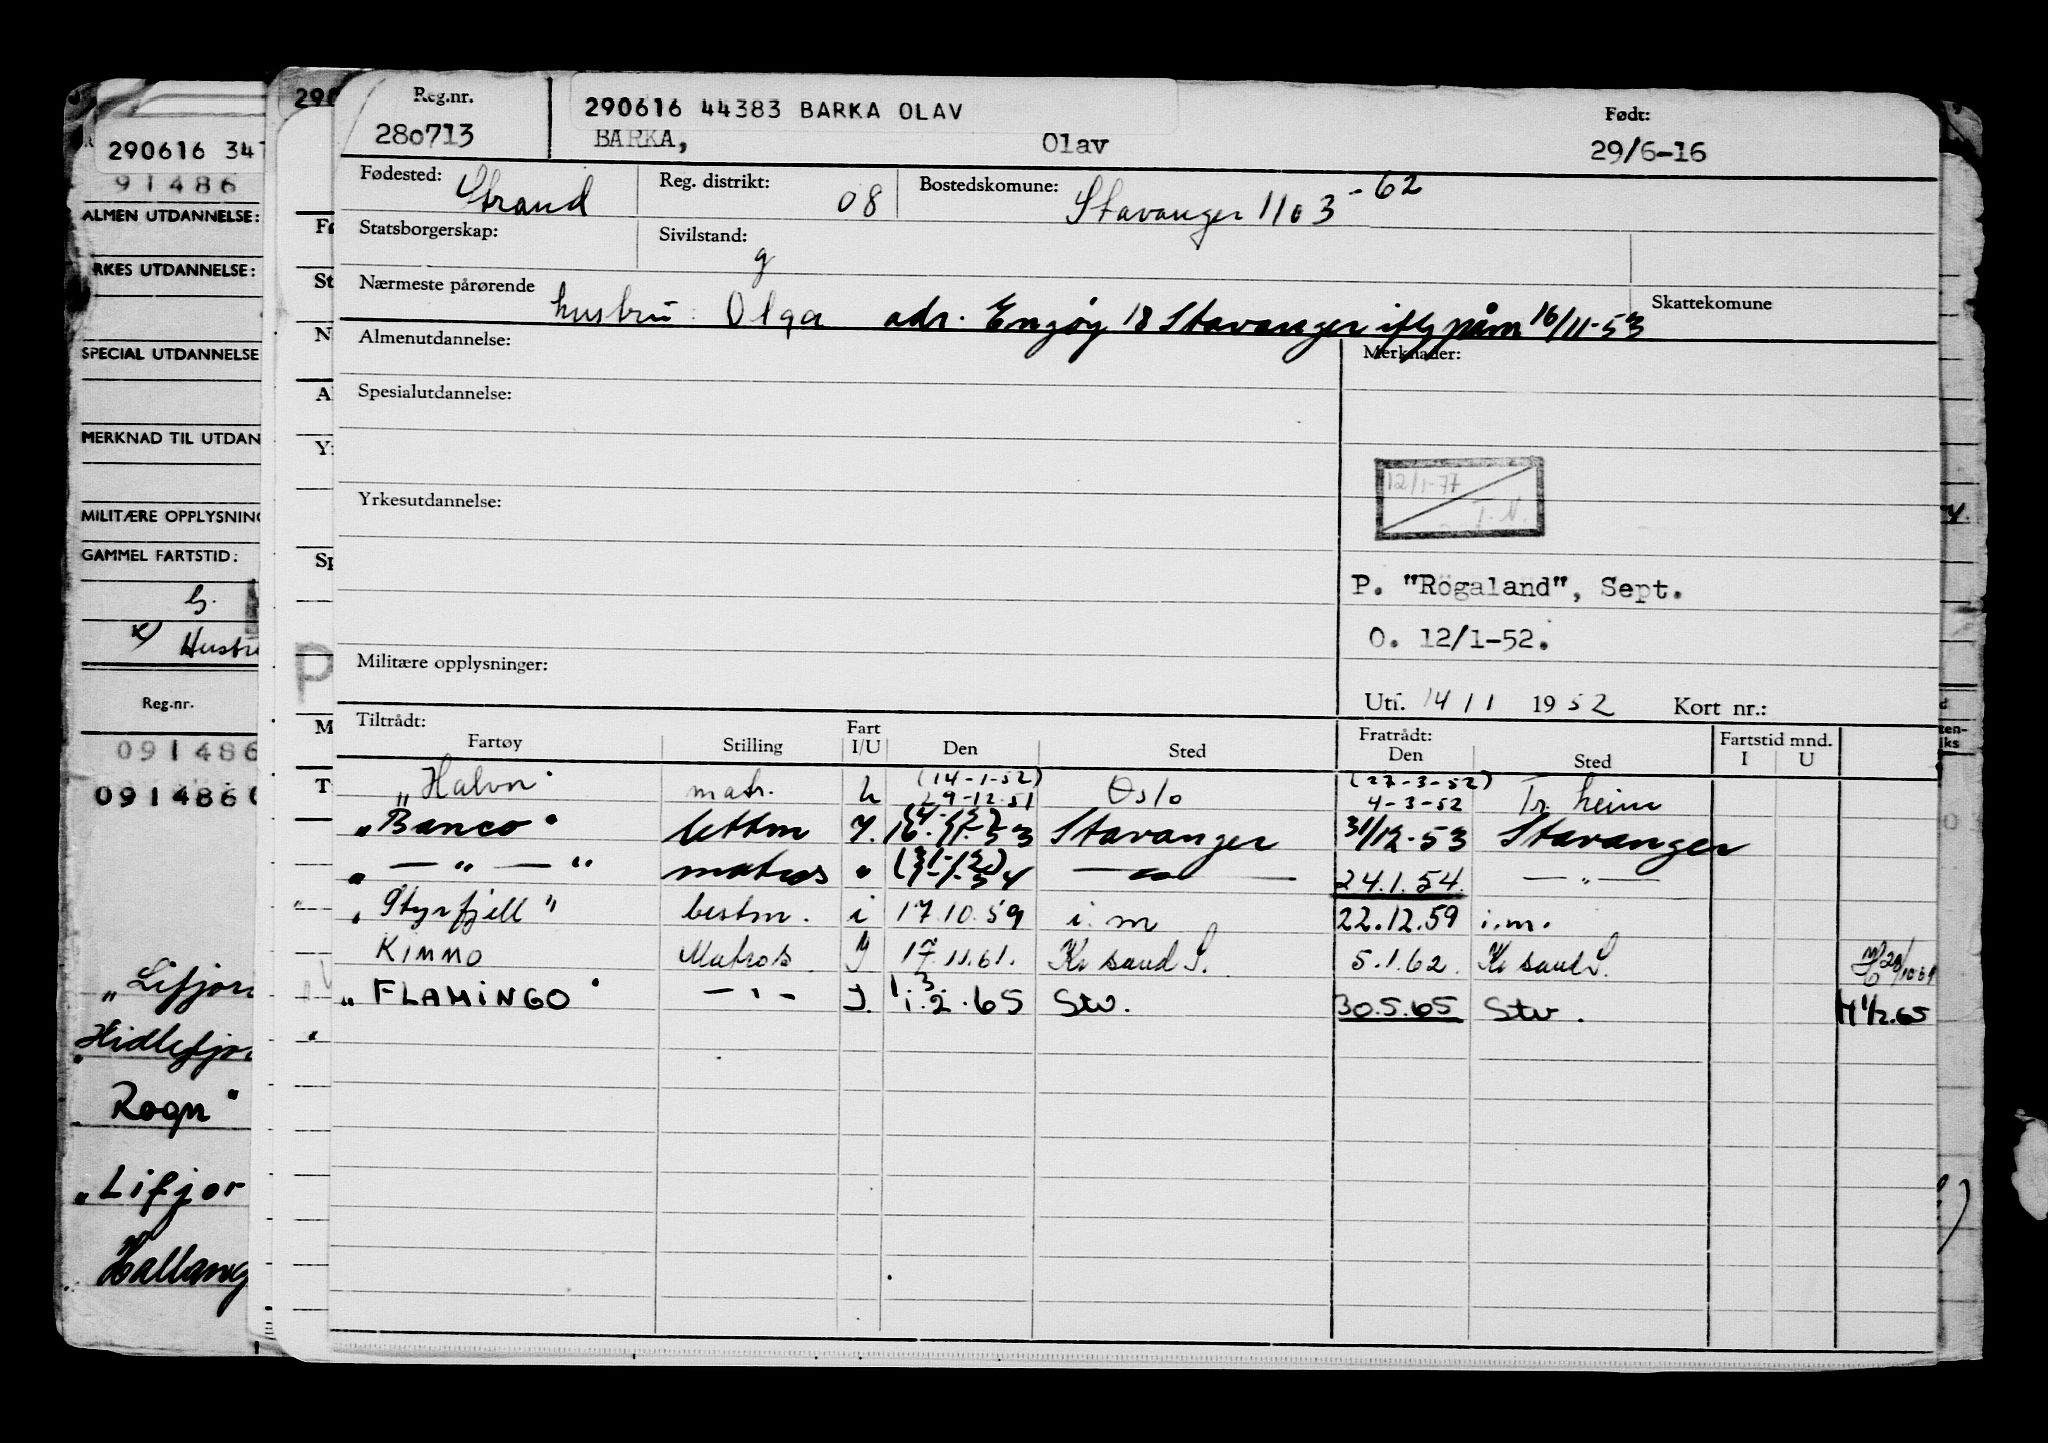 Reg.nr.
280713
290616 44383 BARKA OLAV
BARKA, Olav
Født:
29/6-16
Fødested: Strand
Reg. distrikt: 08
Bostedskomune: Stavanger 1103 -62
Statsborgerskap:
Sivilstand: g
Nærmeste pårørende hustru: Olga adr. Engøy 18 Stavanger iflg påm 16/11-53
Skattekomune
Almenutdannelse:
Merknader:
Spesialutdannelse:
12/1-77
T.N.
Yrkesutdannelse:
P. "Rögaland", Sept.
O. 12/1-52.
Militære opplysninger:
Utf. 14/1 1952 Kort nr.:
Tiltrådt: Fart Fratrådt: Fartstid mnd.
Fartøy Stilling I/U Den Sted Den Sted I U
(14-1-52) (27-3-52)
„Halvor" matr. 29-12-51 Oslo 4-3-52 Tr.heim
„Banco" lettm Stavanger 31/12-53 Stavanger
„—"—" matros 24.1.54 —"—
„Styrfjell" bestm. i 17.10.59 i.m 22.12.59 i.m.
KIMMO Matros 17.11.61. Kr sand S. 5.1.62. Kr sand S.
„FLAMINGO" —"— 1.2.65 Stv. 30.5.65 Stv. H 1/2.65
290616 34
91486
ALMEN UTDANNELSE:
RKES UTDANNELSE:
SPECIAL UTDANNELSE
MERKNAD TIL UTDAN
MILITÆRE OPPLYSNING
GAMMEL FARTSTID:
G.
x) Hustr
Reg.nr.
091486
091486
„Lifjor
Hidlefjor
Rogn"
„Lifjor
Hallang
290
Fø
St
N
A
Y
Sp
P
M
T